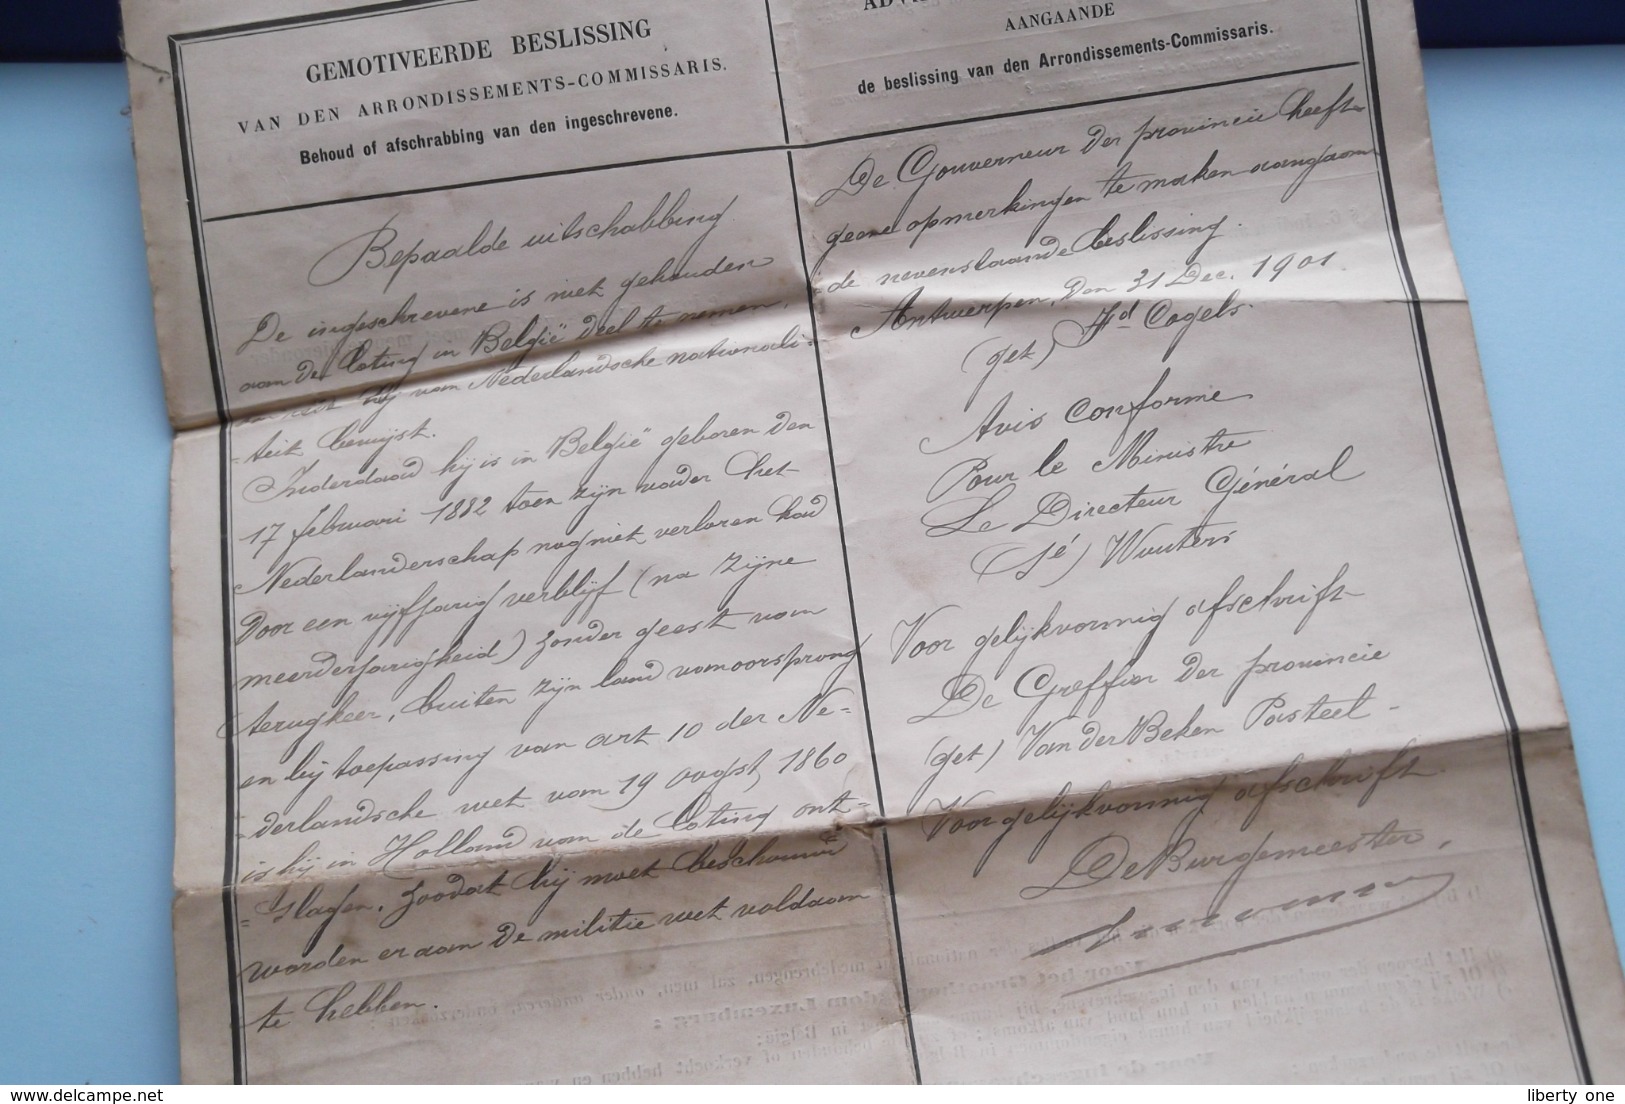 GEMOTIVEERDE BESLISSING
VAN DEN ARRONDISSEMENTS-COMMISSARIS.
Behoud of afschrabbing van den ingeschrevene.
Bepaalde uitschabbing
De ingeschrevene is niet gehouden
aan de loting in België deel te nemen,
hij van Nederlandsche nationali-
-teit bewijst.
Inderdaad hij is in België geboren den
17 februari 1882 toen zijn vader het
Nederlanderschap nog niet verloren had
door een vijfjarig verblijf (na zijne
meerderjarigheid) zonder geest van
terugkeer, buiten zijn land van oorsprong
en bij toepassing van art 10 der Ne-
-derlandsche wet van 19 oogst 1860
is hij in Holland van de loting ont-
-slagen, zoodat hij moet beschouwd
worden er aan de militie wet voldaan
te hebben.
AANGAANDE
de beslissing van den Arrondissements-Commissaris.
De Gouverneur der provincie heeft
geene opmerkingen te maken aangaan-
-de nevenstaande beslissing.
Antwerpen, den 31 Dec. 1901.
(get) Fd Cogels.
Avis conforme
Pour le Ministre
Le Directeur Général
(sé) Wouters
Voor gelijkvormig afschrift
De Greffier der provincie
(get) Van der Beken Pasteel-
Voor gelijkvormig afschrift.
De Burgemeester,
liberty one